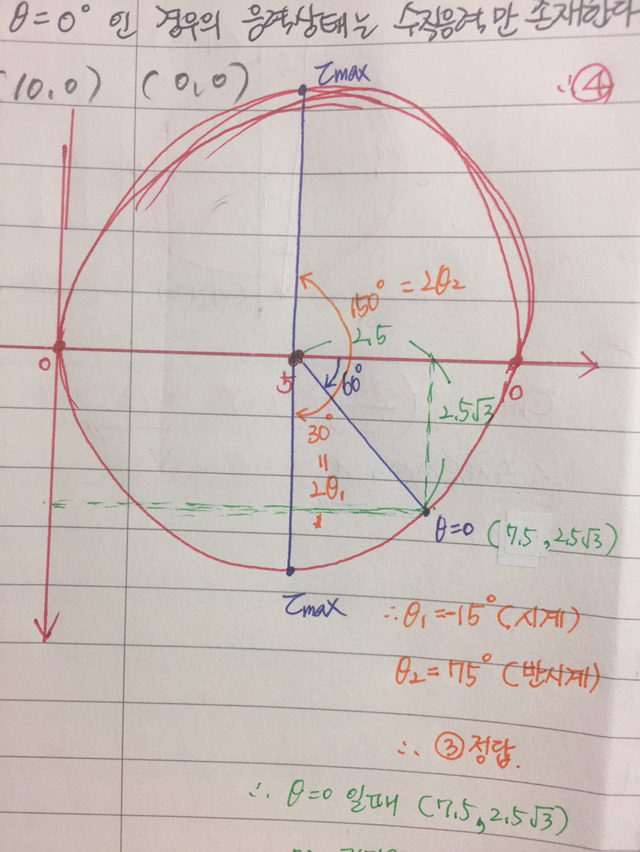 θ=0° 인 경우의 응력상태는 수직응력만 존재한다
(10,0) (0,0)
τmax
∴④
150° = 2θ₂
2.5
0
5
60°
10
2.5√3
30°
=
2θ₁
θ=0 (7.5, 2.5√3)
τmax
∴θ₁=-15° (시계)
θ₂=75° (반시계)
∴ ③정답.
∴ θ=0 일때 (7.5, 2.5√3)